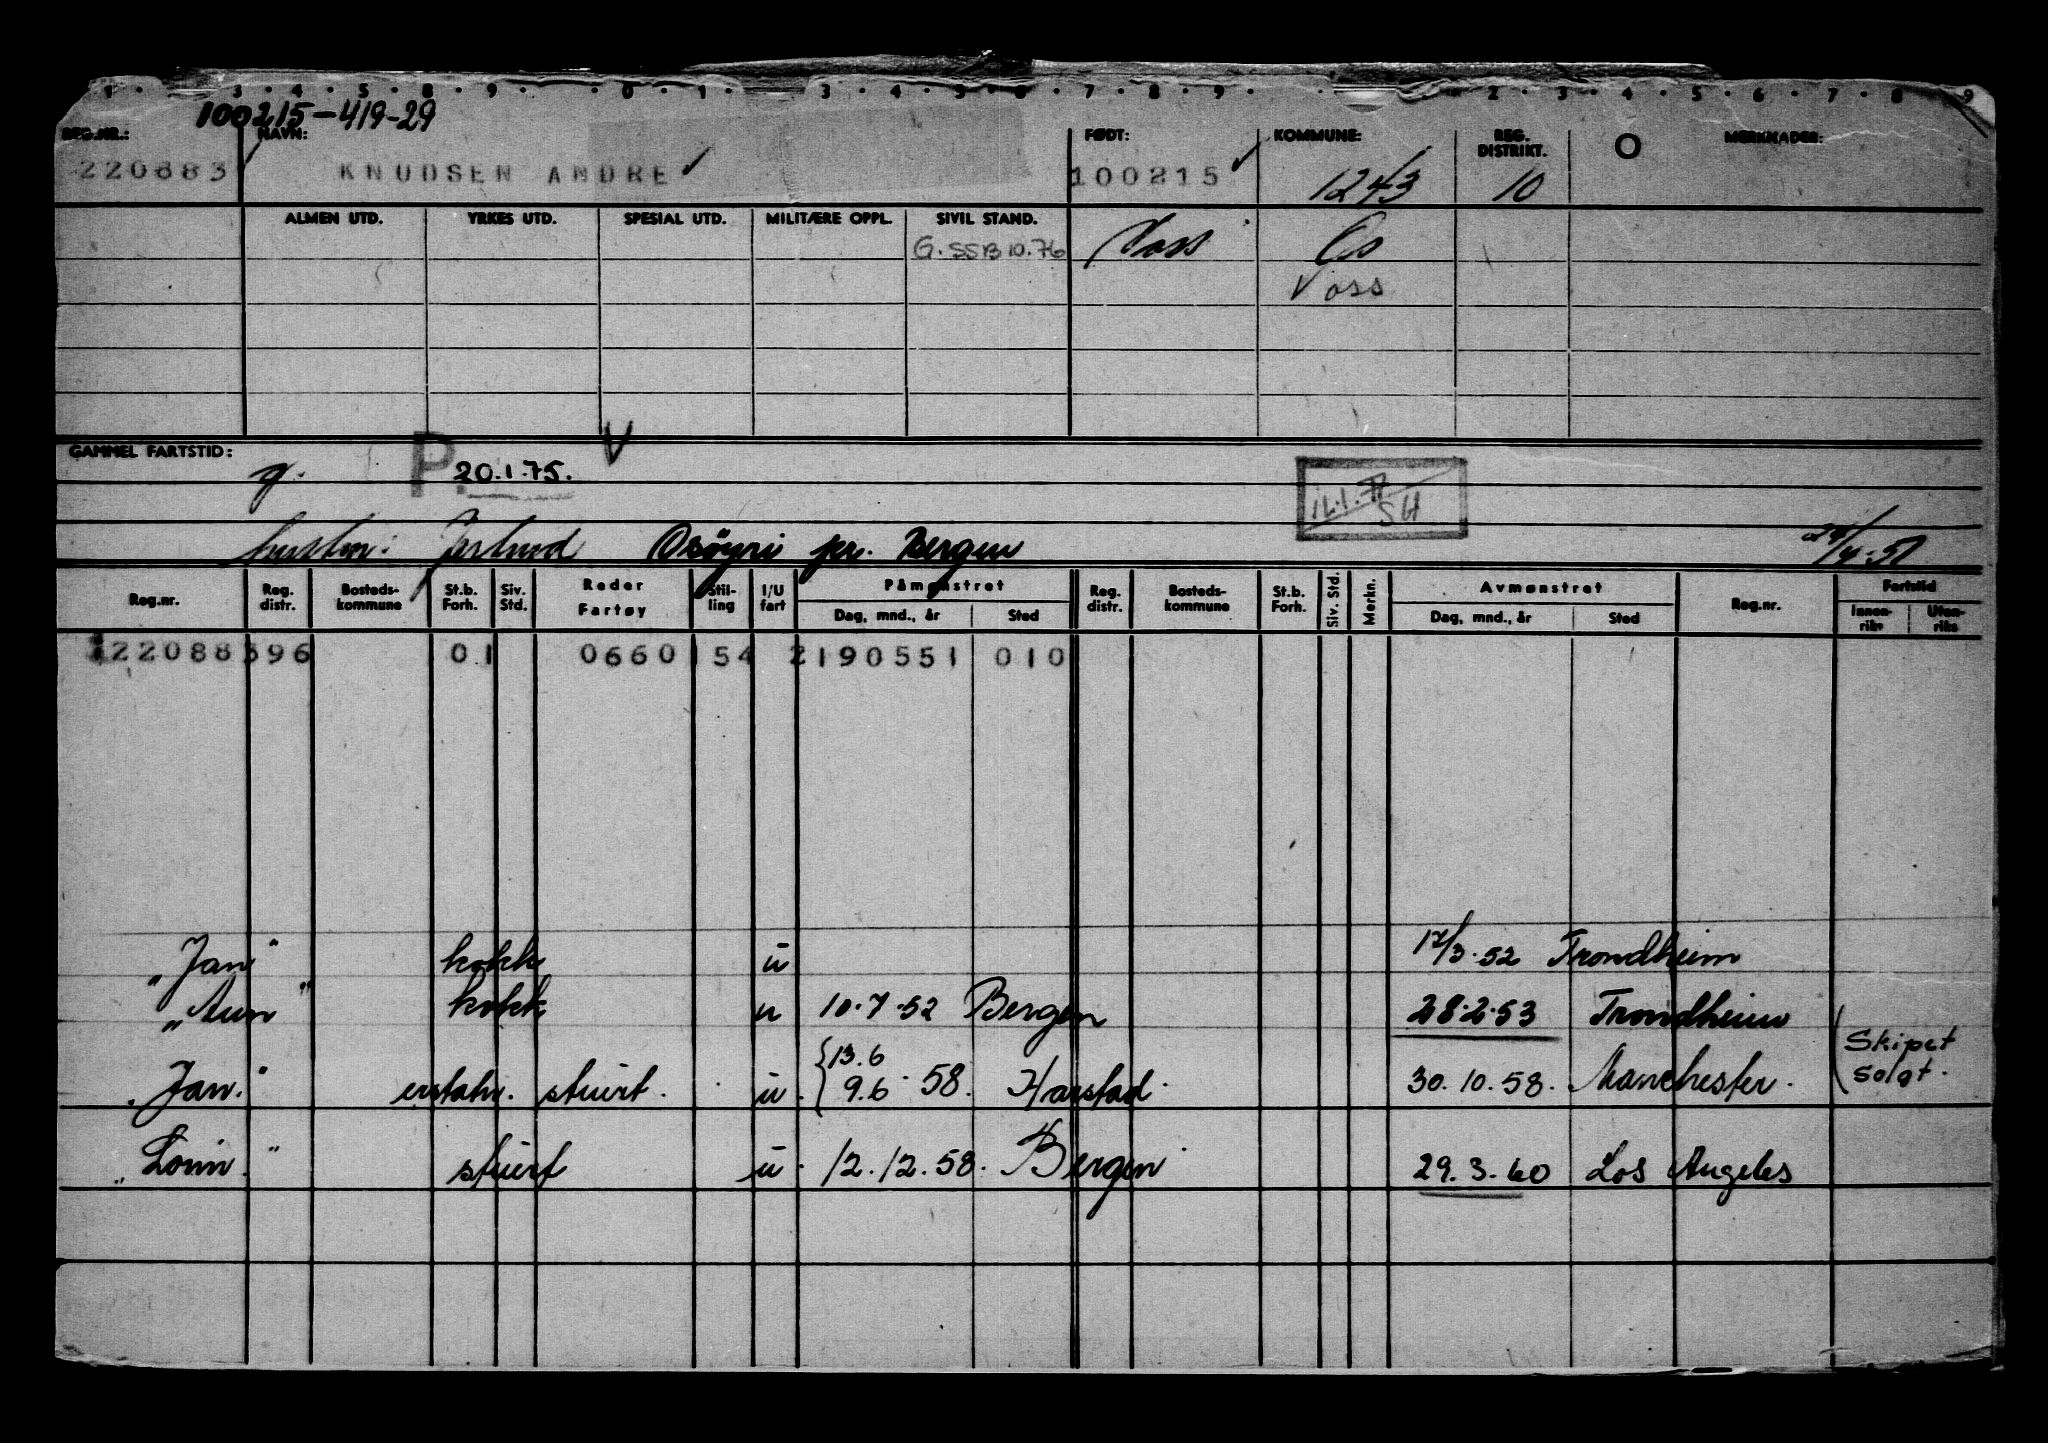 1 · 3 · 4 · 5 · 8 · 9 · 0 · 1 · 3 · 4 · 5 · 6 · 7 · 8 · 9 · 2 · 3 · 4 · 5 · 6 · 7 · 8 · 9
100215-419-29
REG.NR.: NAVN: FØDT: KOMMUNE: REG. DISTRIKT. O MERKNADER:
220883 KNUDSEN ANDRE 100215 1243 10
ALMEN UTD. YRKES UTD. SPESIAL UTD. MILITÆRE OPPL. SIVIL STAND.
G. SSB 10.76 Voss Os
Voss
GAMMEL FARTSTID:
g. P. 20.1.75. V
SH
hustru: Osøyri pr. Bergen 
Reg.nr. Reg. distr. Bosteds-kommune St.b. Forh. Siv. Std. Reder Fartøy Stil-ling I/U fart Påmønstret Dag, mnd., år Sted Reg. distr. Bosteds-kommune St.b. Forh. Siv. Std. Merkn. Avmønstret Dag, mnd., år Sted Reg.nr. Fartstid Innen-riks Uten-riks
22088396 01 0660154 2190551 010
"Jan" kokk u 17/3.52 Trondheim
"Aun" kokk u 10.7.52 Bergen 28.2.53 Trondheim
"Jan." erstatn. stuert. u. {13.6 9.6 58. Harstad. 30.10.58. Manchester. (Skipet solgt.
"Lorin." stuert u. 12.12.58. Bergen 29.3.60 Los Angeles